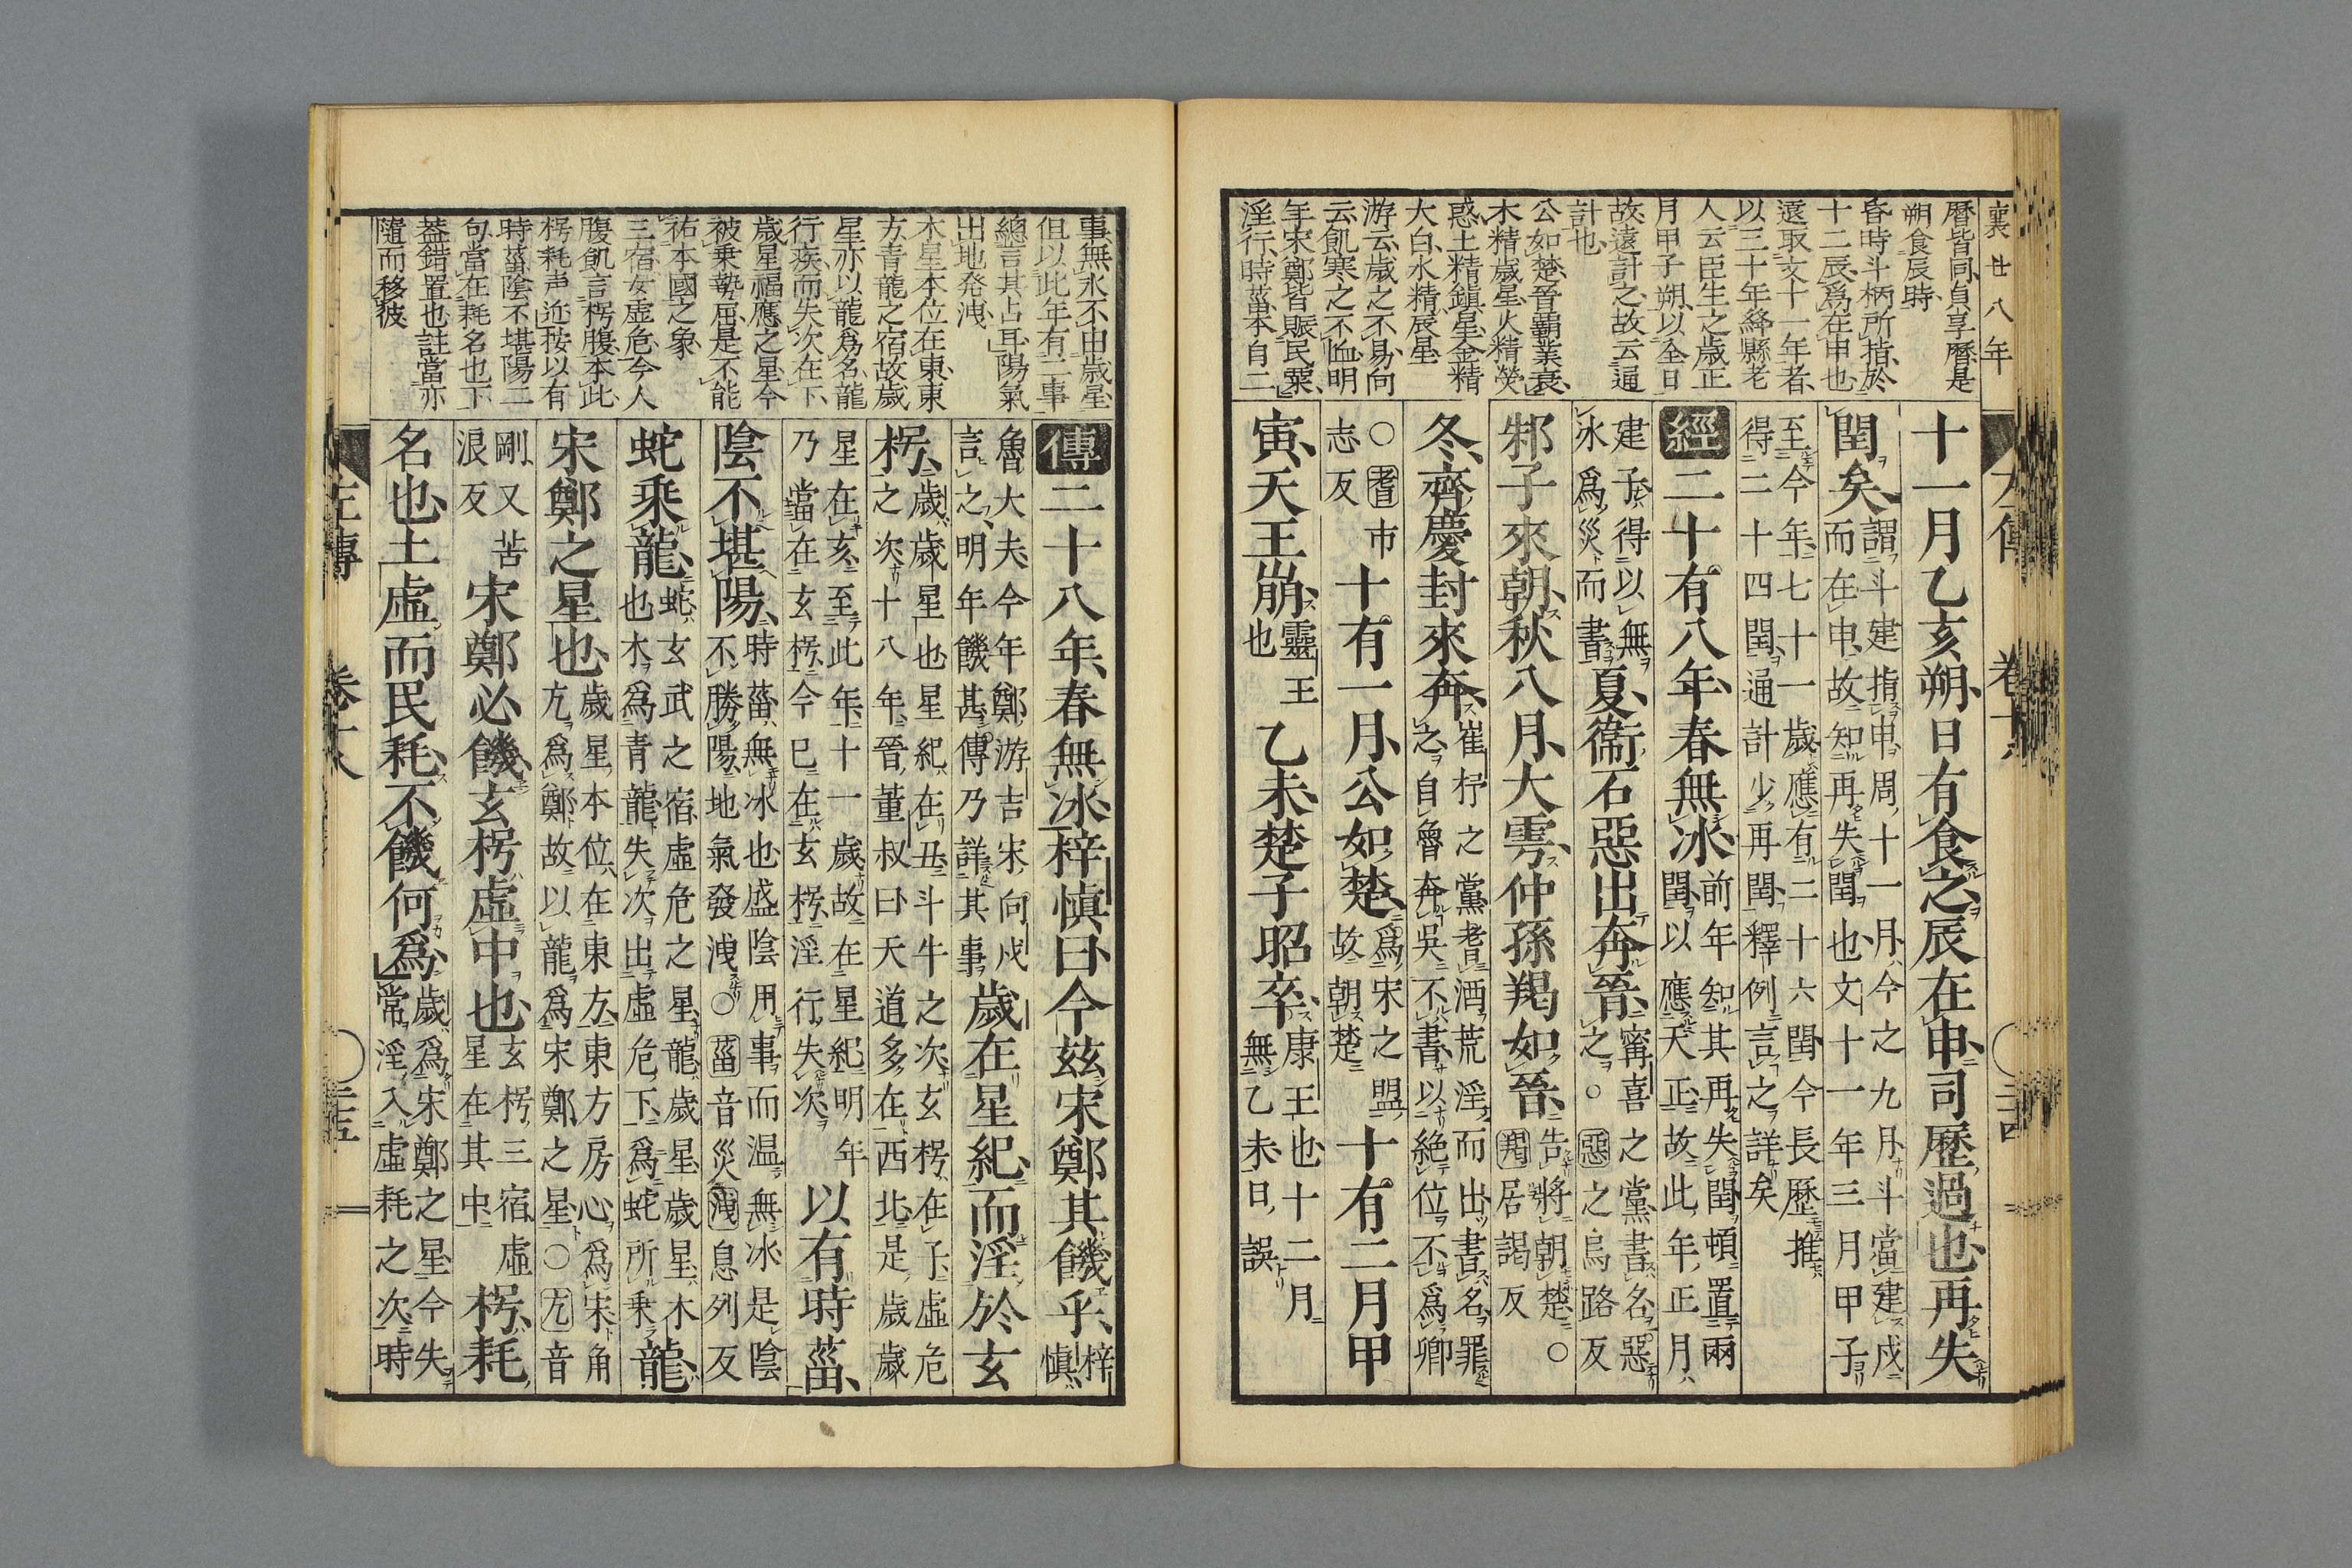 襄廿八年
曆皆同貞享曆是
朔食辰時
昏時斗柄所指於
十二辰爲在申也
遠取文十一年者
以三十年絳縣老
人云臣生之歳正
月甲子朔以全日
故遠計之故云通
計也
公如楚晉霸業衰
木精歳星火精熒
惑土精鎮星金精
大白水精辰星
游云歳之不易向
云飢寒之不恤明
年宋鄭皆賑民粟
淫行時菑本自二
十一月乙亥朔日有食之辰在申司歷過也再失
閏矣謂斗建指申周十一月今之九月斗當建戌
而在申故知再失閏也文十一年三月甲子
至今年七十一歳應有二十六閏今長歷推
得二十四閏通計少再閏釋例言之詳矣
經二十有八年春無冰前年知其再失閏頓置兩
閏以應天正故此年正月
建子得以無
冰爲災而書夏衞石惡出奔晉甯喜之黨書名惡
之○惡之烏路反
邾子來朝秋八月大雩仲孫羯如晉告將朝楚○
羯居謁反
冬齊慶封來奔崔杼之黨耆酒荒淫而出書名罪
之自魯奔吳不書以絶位不爲卿
○耆市
志反十有一月公如楚爲宋之盟
故朝楚十有二月甲
寅天王崩靈王
也乙未楚子昭卒康王也十二月
無乙未日誤
事無水不由歳星
但以此年有二事
總言其占耳陽氣
出地発洩
木星本位在東東
方青龍之宿故歳
星亦以龍爲名龍
行疾而失次在下
歳星福應之星今
被乗勢屈是不能
祐本國之象
三宿女虚危今人
腹飢言枵腹本此
枵耗声近按以有
時菑陰不堪陽二
句當在耗名也下
葢錯置也註當亦
隨而移彼
傳二十八年春無冰梓慎曰今茲宋鄭其饑乎梓
慎
魯大夫今年鄭游吉宋向戌
言之明年饑甚傳乃詳其事歳在星紀而淫於玄
枵歳歳星也星紀在丑斗牛之次玄枵在子虛危
之次十八年晉董叔曰天道多在西北是歳歳
星在亥至此年十一歳故在星紀明年
乃當在玄枵今已在玄枵淫行失次以有時菑
陰不堪陽時菑無冰也盛陰用事而温無冰是陰
不勝陽地氣發洩○菑音災洩息列反
蛇乘龍蛇玄武之宿虛危之星龍歳星歳星木
也木爲青龍失次出虛危下爲蛇所乘龍
宋鄭之星也歳星本位在東方東方房心爲宋角
亢爲鄭故以龍爲宋鄭之星○亢音
剛又苦
浪反宋鄭必饑玄枵虛中也玄枵三宿虛
星在其中枵耗
名也土虛而民耗不饑何爲歳爲宋鄭之星今失
常淫入虛耗之次時
左傳 卷十八 三十五